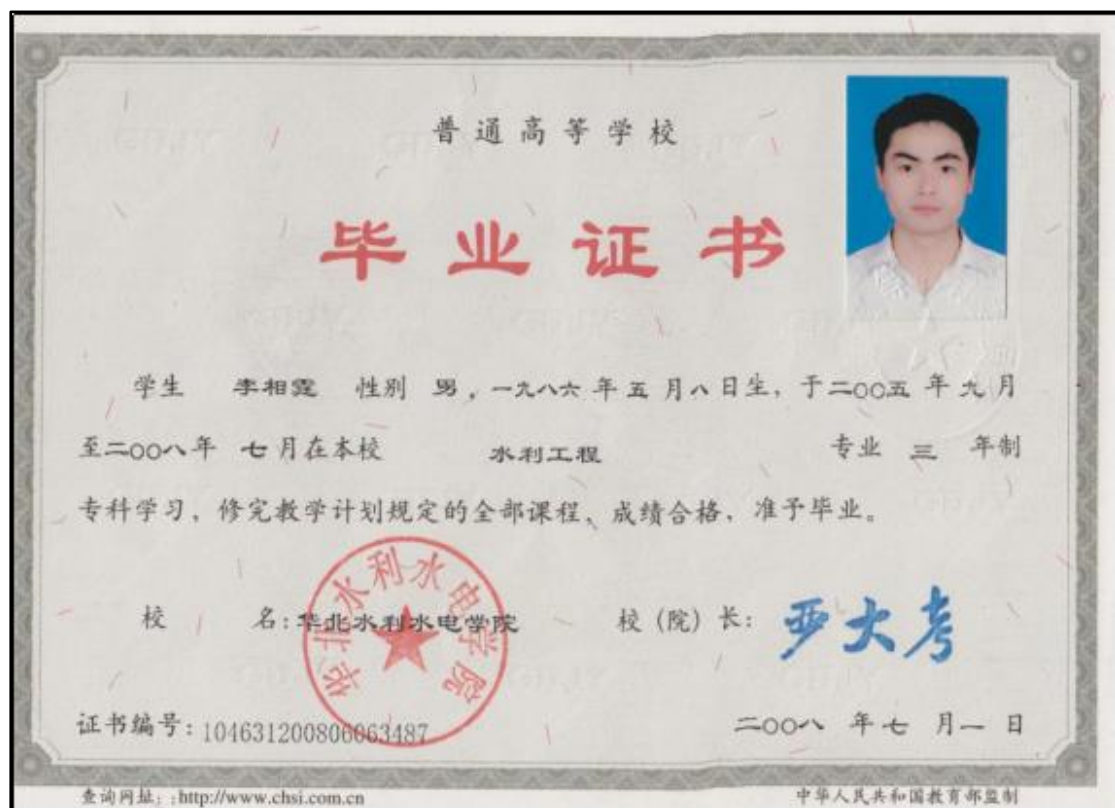 普通高等学校
毕业证书
学生 李相霆 性别 男，一九八六年五月八日生，于二〇〇五年九月
至二〇〇八年 七月在本校 水利工程 专业 三 年制
专科学习，修完教学计划规定的全部课程、成绩合格，准予毕业。
校 名：华北水利水电学院 校（院）长：
华北水利水电学院
证书编号：104631200806063487 二〇〇八 年七 月一 日
查询网址：:http://www.chsi.com.cn 中华人民共和国教育部监制